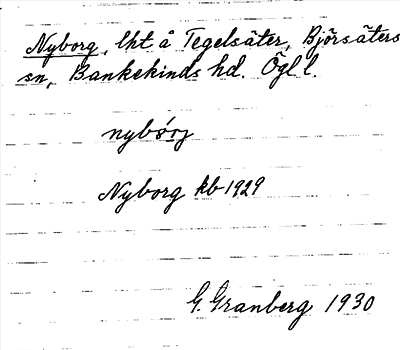 Nyborg, lht å Tegelsäter, Björsäters
sn, Bankekinds hd. Ögl l.
nybórj
Nyborg kb 1929
G. Granberg 1930